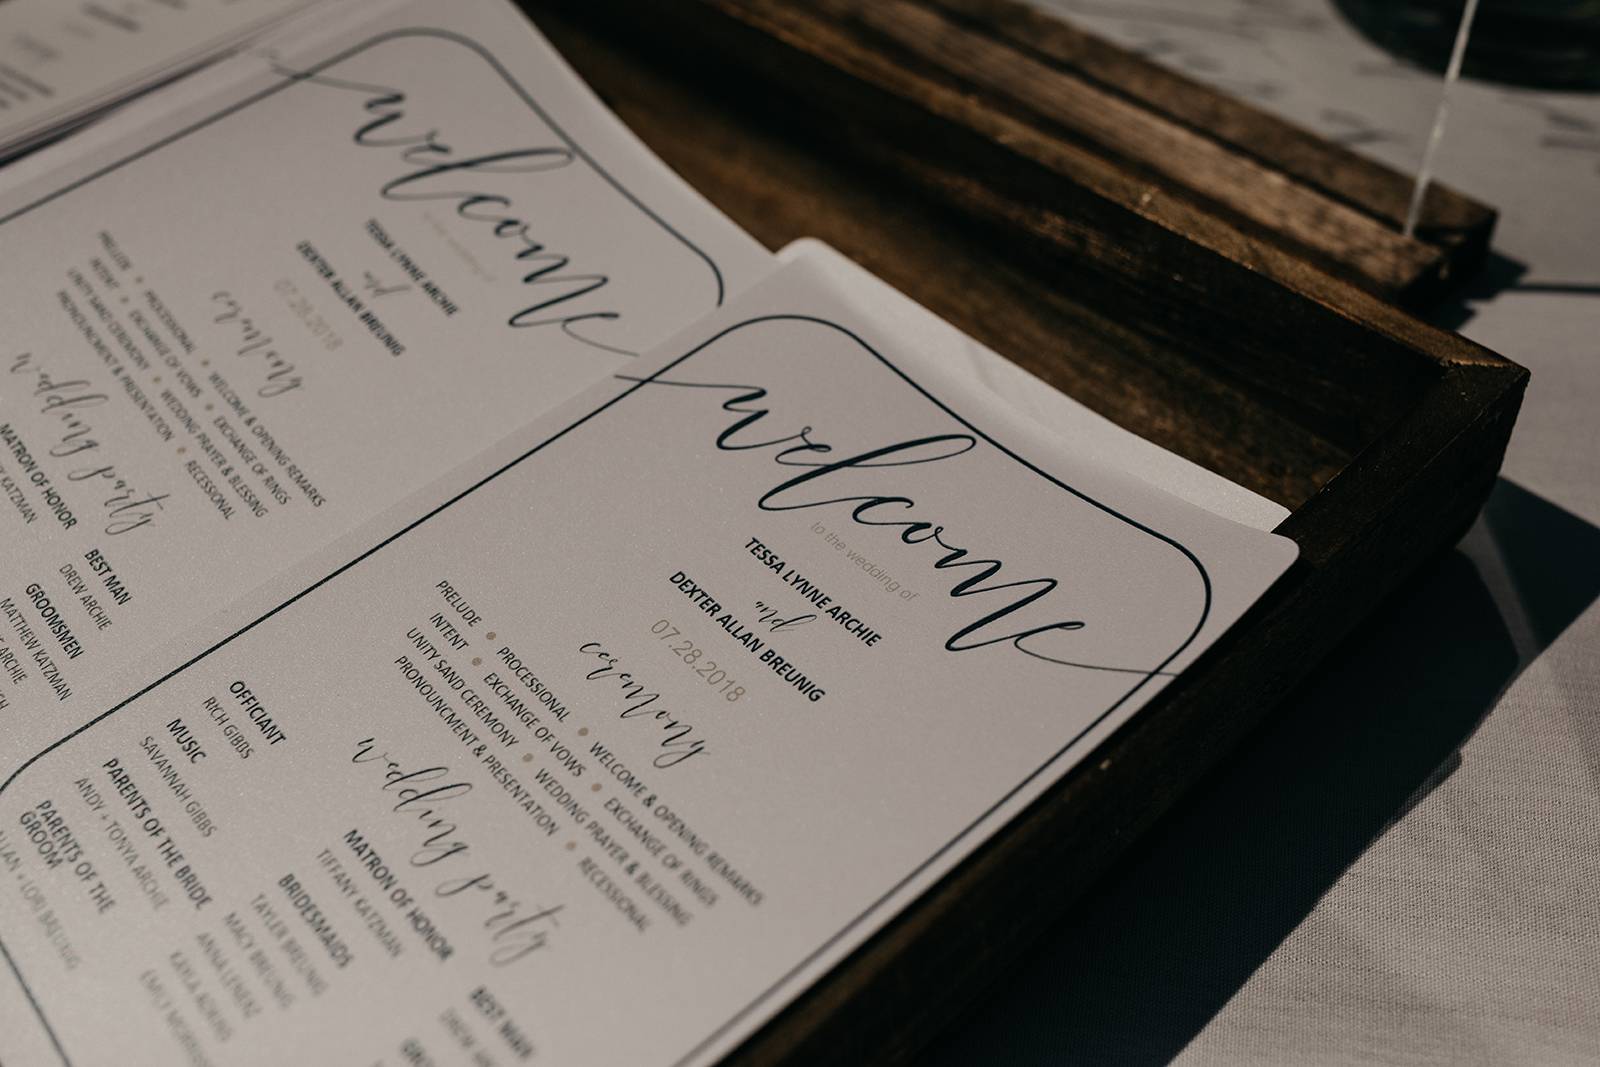 welcome
to the wedding of
TESSA LYNNE ARCHIE
and
DEXTER ALLAN BREUNIG
07.28.2018
ceremony
PRELUDE • PROCESSIONAL • WELCOME & OPENING REMARKS
INTENT • EXCHANGE OF VOWS • EXCHANGE OF RINGS
UNITY SAND CEREMONY • WEDDING PRAYER & BLESSING
PRONOUNCMENT & PRESENTATION • RECESSIONAL
wedding party
OFFICIANT
RICH GIBBS
MUSIC
SAVANNAH GIBBS
PARENTS OF THE BRIDE
ANDY + TONYA ARCHIE
PARENTS OF THE
GROOM
ALLAN + LORI BREUNIG
MATRON OF HONOR
TIFFANY KATZMAN
BRIDESMAIDS
TAYLER BREUNIG
MACY BREUNIG
ANNA LENERZ
KAYLA ADKINS
EMILY
BEST MAN
DREW
welcome
TESSA LYNNE ARCHIE
and
DEXTER ALLAN BREUNIG
07.28.2018
ceremony
PRELUDE • PROCESSIONAL • WELCOME & OPENING REMARKS
INTENT • EXCHANGE OF VOWS • EXCHANGE OF RINGS
UNITY SAND CEREMONY • WEDDING PRAYER & BLESSING
PRONOUNCMENT & PRESENTATION • RECESSIONAL
wedding party
MATRON OF HONOR
KATZMAN
BEST MAN
DREW ARCHIE
GROOMSMEN
MATTHEW KATZMAN
ARCHIE